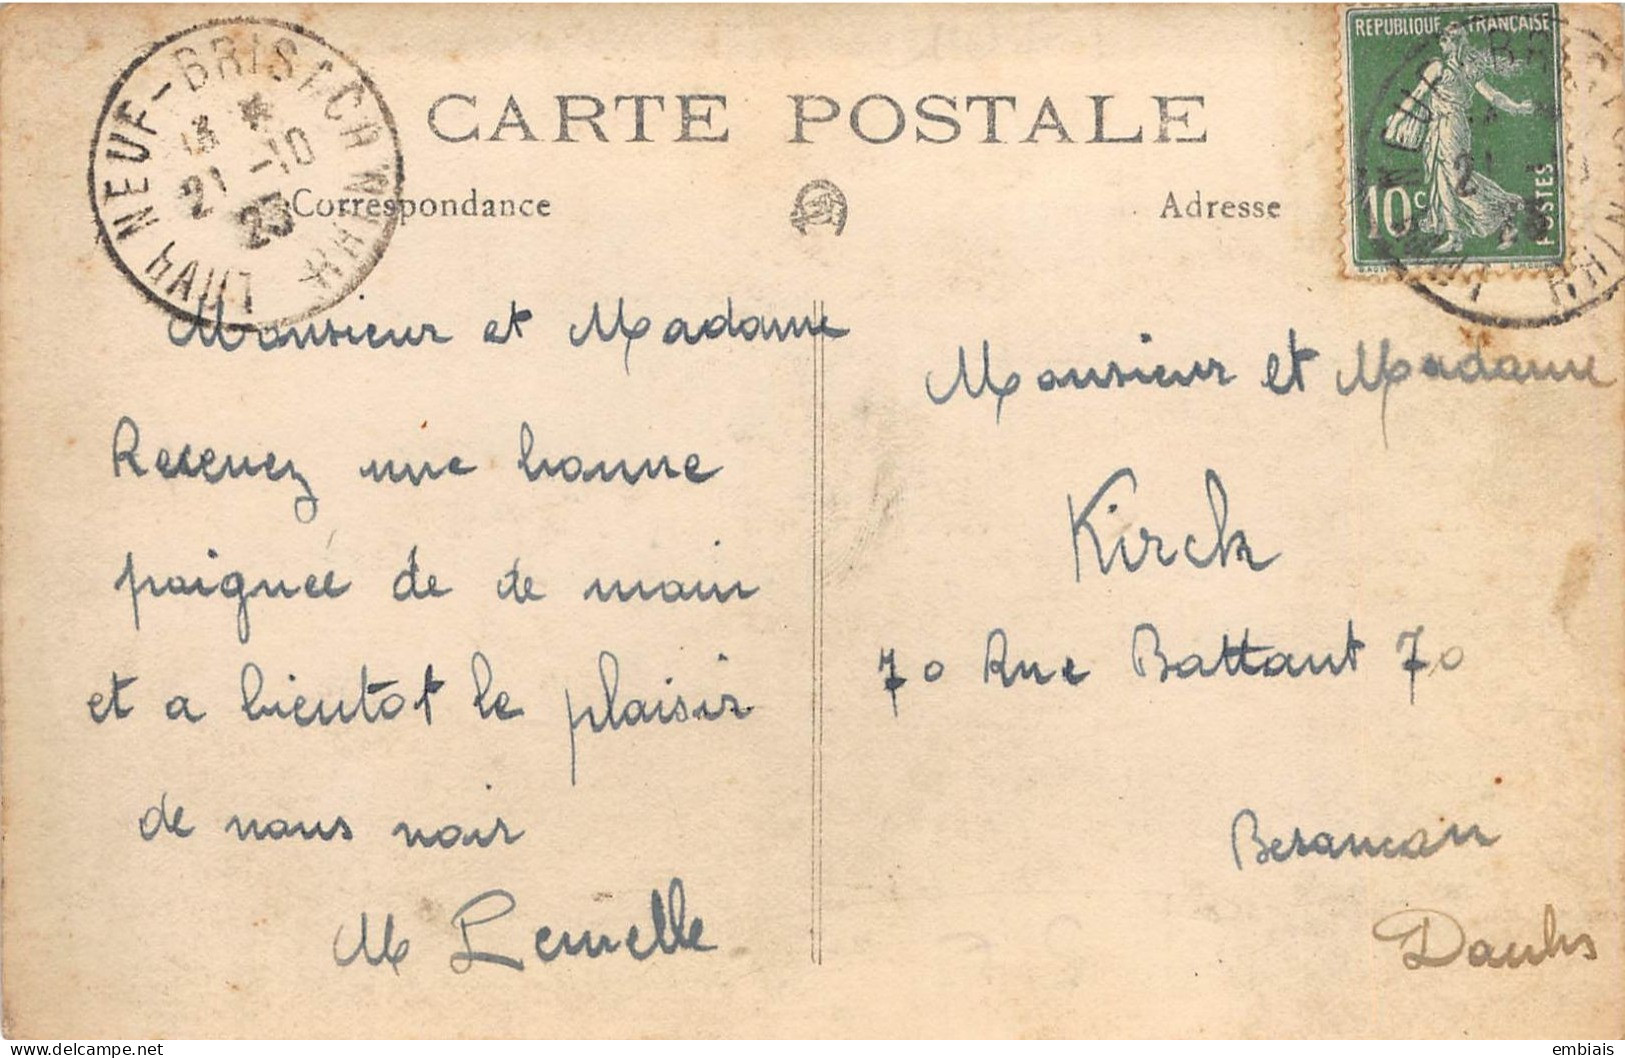 NEUF-BRISACH HAUT RHIN
13 *
21 -10
23
CARTE POSTALE
Correspondance
Adresse
REPUBLIQUE FRANÇAISE
10c
POSTES
Monsieur et Madame
Recevez une bonne
poignée de de main
et a bientot le plaisir
de vous voir
M Lemelle
Monsieur et Madame
Kirck
70 Rue Battant 70
Besancon
Doubs
embiais